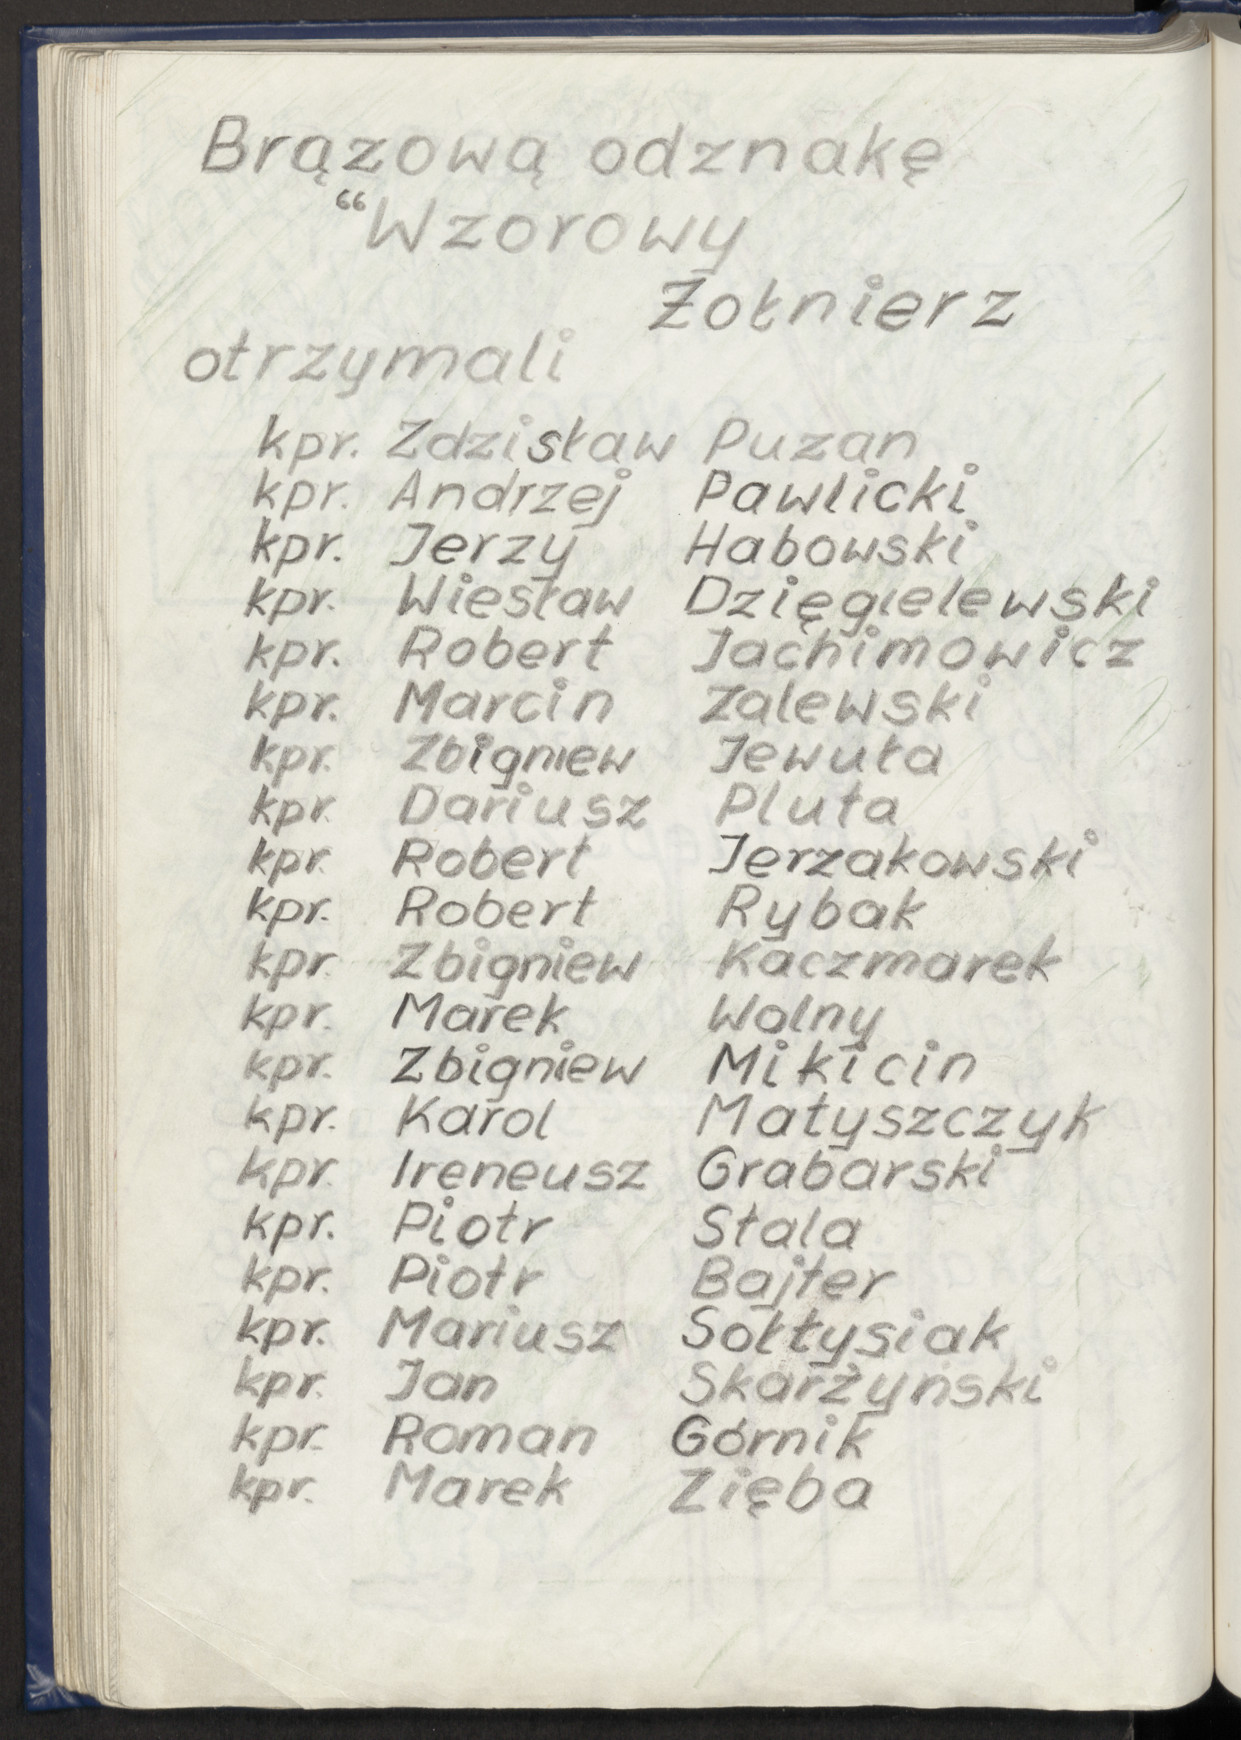 Brązową odznakę
“Wzorowy
Żołnierz
otrzymali
kpr. Zdzisław Puzan
kpr. Andrzej Pawlicki
kpr. Jerzy Habowski
kpr. Wiesław Dzięgielewski
kpr. Robert Jachimowicz
kpr. Marcin Zalewski
kpr. Zbigniew Jewuła
kpr. Dariusz Pluta
kpr. Robert Jerzakowski
kpr. Robert Rybak
kpr. Zbigniew Kaczmarek
kpr. Marek Wolny
kpr. Zbigniew Mikicin
kpr. Karol Matyszczyk
kpr. Ireneusz Grabarski
kpr. Piotr Stala
kpr. Piotr Bajter
kpr. Mariusz Sołtysiak
kpr. Jan Skarżyński
kpr. Roman Górnik
kpr. Marek Zięba